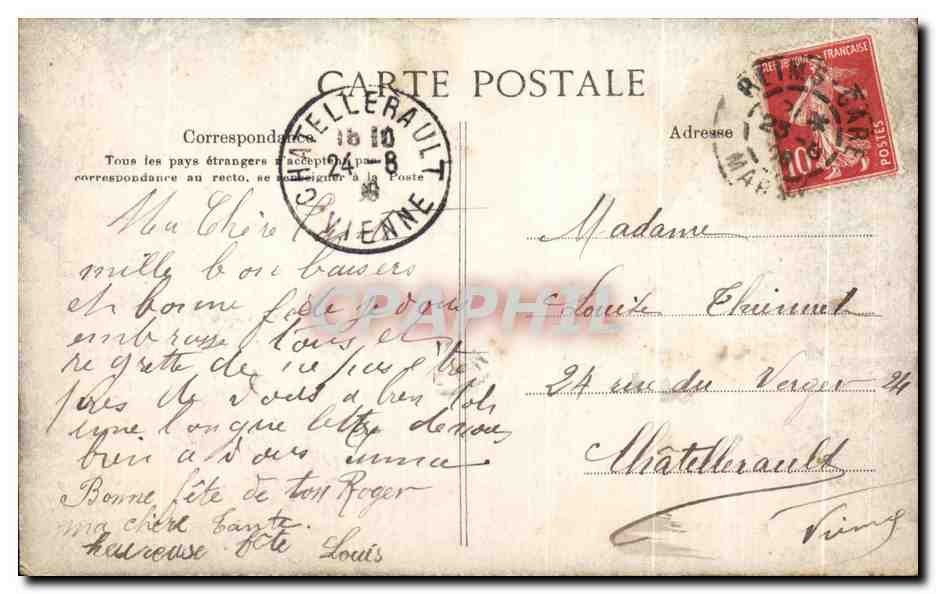 CARTE POSTALE
Correspondance
Tous les pays étrangers n'acceptent pas
correspondance au recto, se renseigner à la Poste
CHATELLERAULT
24 - 8
VIENNE
Adresse
REPUBLIQUE FRANÇAISE
10
POSTES
REIMS GARE
MARNE
Ma Chère
mille bon baisers
et bonne fête je vous
embrasse tous et
regrette de ne pas être
près de vous a bientot
une longue lettre de nous
bien a vous Emma
Bonne fête de ton Roger
ma chère tante.
heureuse fête Louis
Madame
Louise Thiennet
24 rue du Verger 24
Châtellerault
Vienne
CPAPHIL